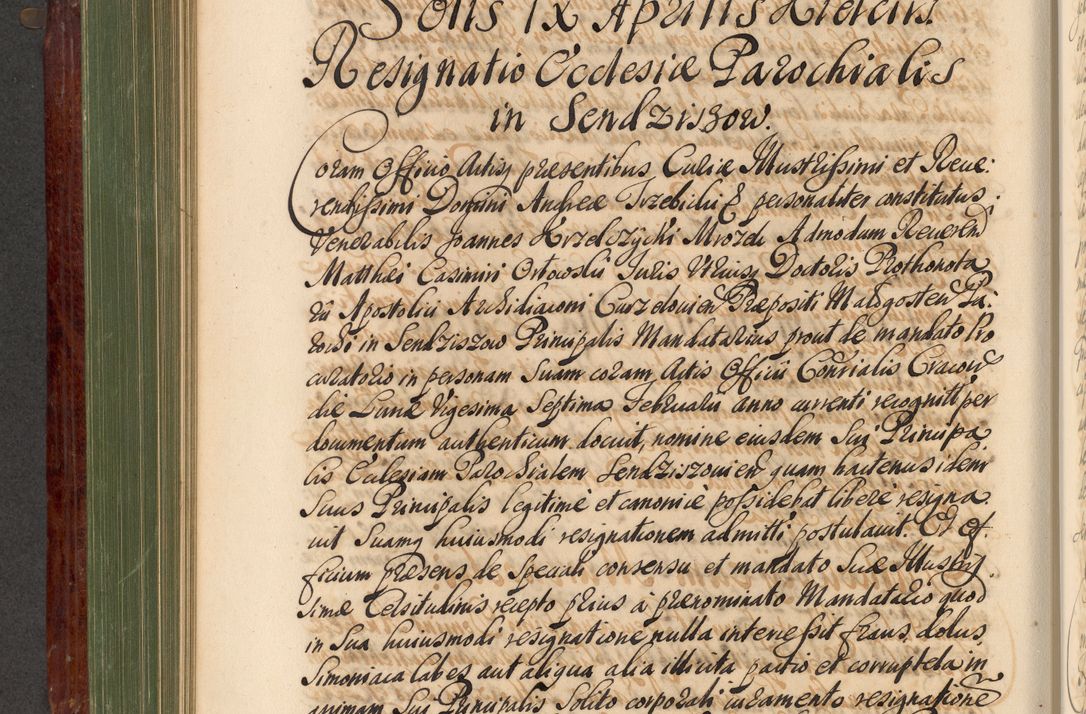 Solis IX Aprilis
Resignatio Ecclesiæ Parochialis
in Sendziszow.
Coram Officio Actisq præsentibus Curiæ Illustrissimi et Reue:
rendissimi Domini Andreæ Trzebicki personaliter constitutus
Venerabilis Joannes Krzelczycki Admodum Reuerend
Matthæi Casimiri Orłowski Juris Vtriusq Doctoris Prothonota
rii Apostolici Archidiaconi Curzelouien Præpositi Małogosten Pa
rochi in Sendziszow Principalis Mandatarius prout de mandato Pro
curatorio in personam Suam coram Actis Officii Con̄rialis Cracou
die Lunæ Vigesima Septima Februarii anno currenti recognitt per
documentum authenticum docuit, nomine eiusdem Sui Principa
lis Ecclesiam Parochialem Sendziszouien quam hactenus idem
Suus Principalis legitimè et canonicè possidebat liberè resigna
uit Suamq huiusmodi resignationem admitti postulauit. Et Of
ficium præsens de Speciali consensu et mandato Suæ Illustris
simæ Celsitudinis recepto prius à prænominato Mandatario quod
in Sua huiusmodi resignatione nulla interuessit fraus, dolus,
Simoniaca labes aut aliqua alia illicita pactio et corruptela in
animam Sui Principalis Solito corporali iuramento resignationē